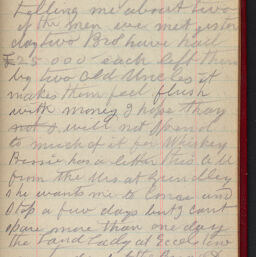 telling me about two
of the men we met yester
day two Bros have had
£25000 each left them
by two Old Uncles it
makes them feel flush
with money I hope they
not I will not spend
to much of it for Whiskey
Bessie has a letter this AM
from the Mrs at Grindley
she wants me to Come und
stop a few days but I cant
spare more than one day
the Land Lady at Eccles